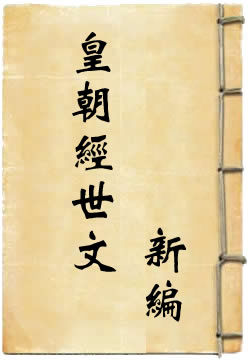 皇朝經世文
新編